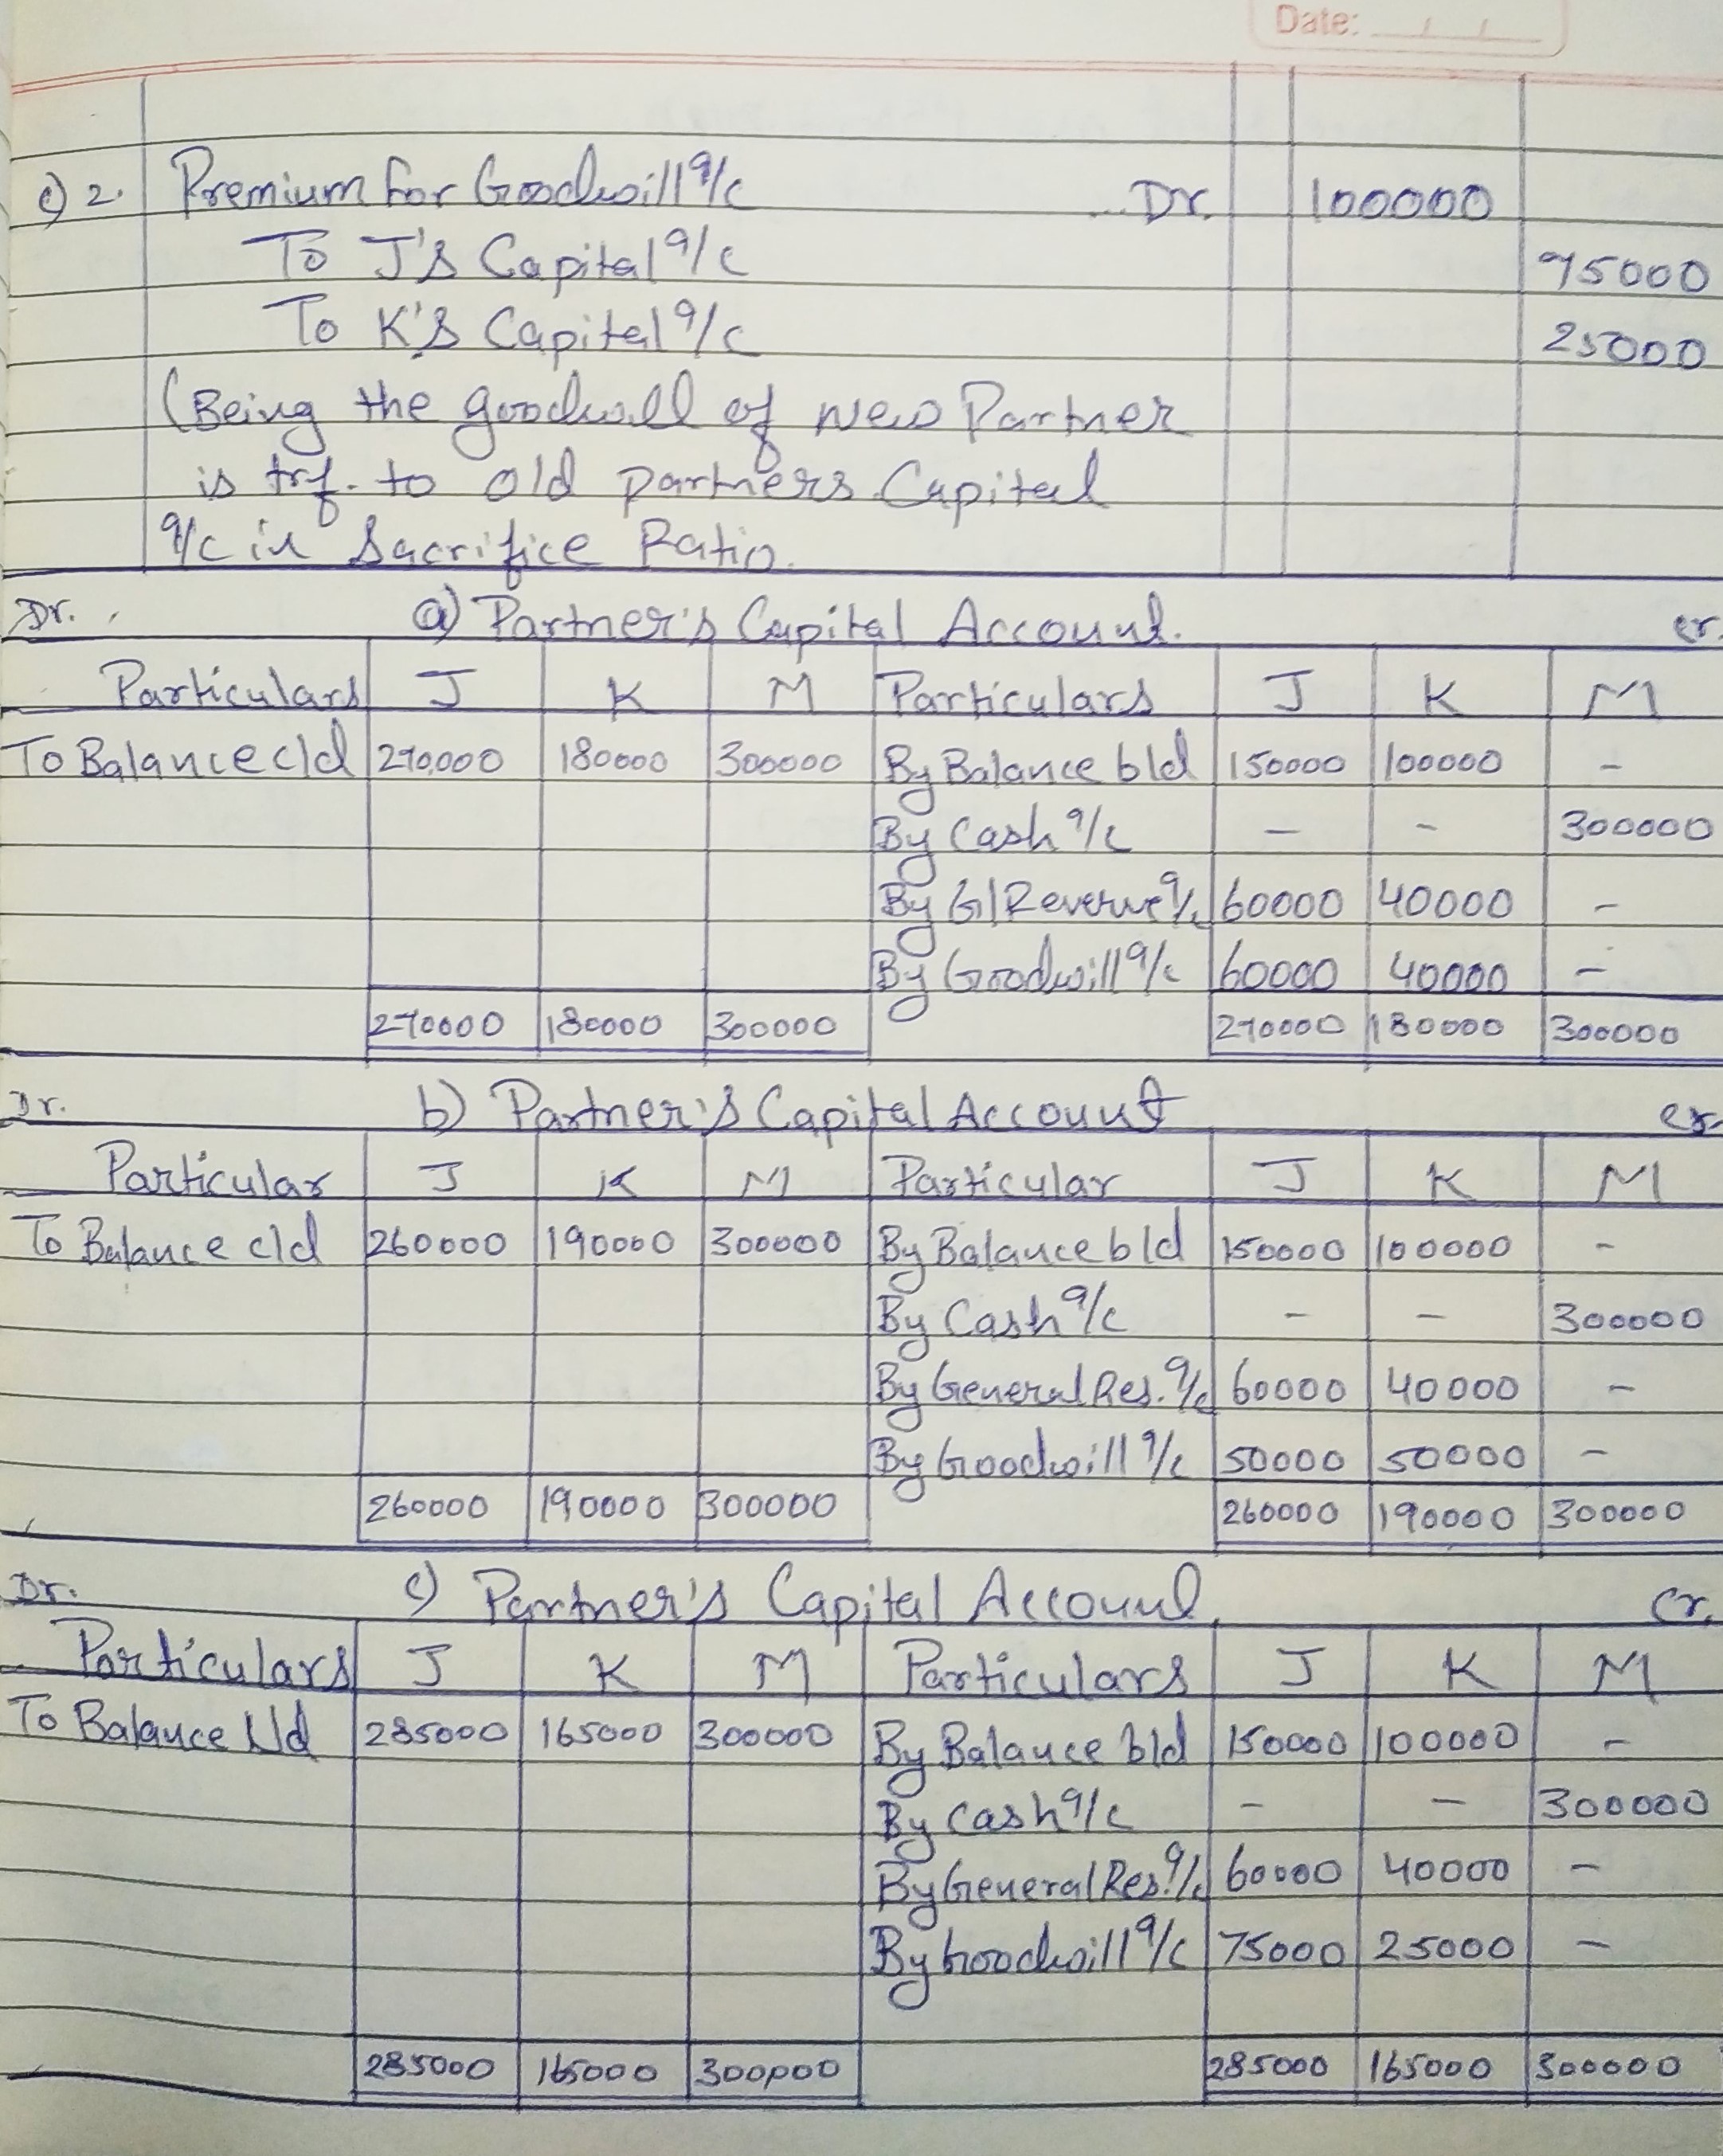 Date: / /
c) 2. Premium for Goodwill a/c ... Dr. 100000
To J's Capital a/c 75000
To K's Capital a/c 25000
(Being the goodwill of New Partner
is trf. to old partners Capital
a/c in Sacrifice Ratio.
Dr. a) Partner's Capital Account. cr.
Particulars J K M Particulars J K M
To Balance c/d 270000 180000 300000 By Balance b/d 150000 100000 -
By Cash a/c - - 300000
By G/Reverve a/c 60000 40000 -
By Goodwill a/c 60000 40000 -
270000 180000 300000 270000 180000 300000
Dr. b) Partner's Capital Account cr.
Particular J K M Particular J K M
To Balance c/d 260000 190000 300000 By Balance b/d 150000 100000 -
By Cash a/c - - 300000
By General Res. a/c 60000 40000 -
By Goodwill a/c 50000 50000 -
260000 190000 300000 260000 190000 300000
Dr. c) Partner's Capital Account. Cr.
Particulars J K M Particulars J K M
To Balance c/d 285000 165000 300000 By Balance b/d 150000 100000 -
By Cash a/c - - 300000
By General Res. a/c 60000 40000 -
By Goodwill a/c 75000 25000 -
285000 165000 300000 285000 165000 300000